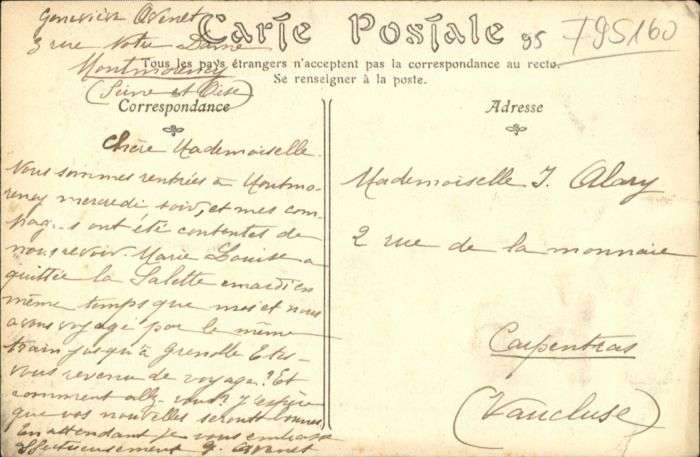 Geneviève
3 rue Notre Dame
Montmorency
(Seine et Oise)
Carte Postale
95
795160
Tous les pays étrangers n'acceptent pas la correspondance au recto.
Se renseigner à la poste.
Correspondance
Adresse
Chère Mademoiselle.
Nous sommes rentrées à Montmo-
rency mercredi soir, et mes com-
pagnes ont été contentes de
nous revoir. Marie Louise a
quittée la Salette mardi en
même temps que moi et nous
avons voyagé par le même
train jusqu'à Grenoble Etes-
vous revenue de voyage? Et
comment allez vous? J'espère
que vos nouvelles seront bonnes
En attendant je vous embrasse
affectueusement G.
Mademoiselle J. Alary
2 rue de la monnaie
Carpentras
(Vaucluse)